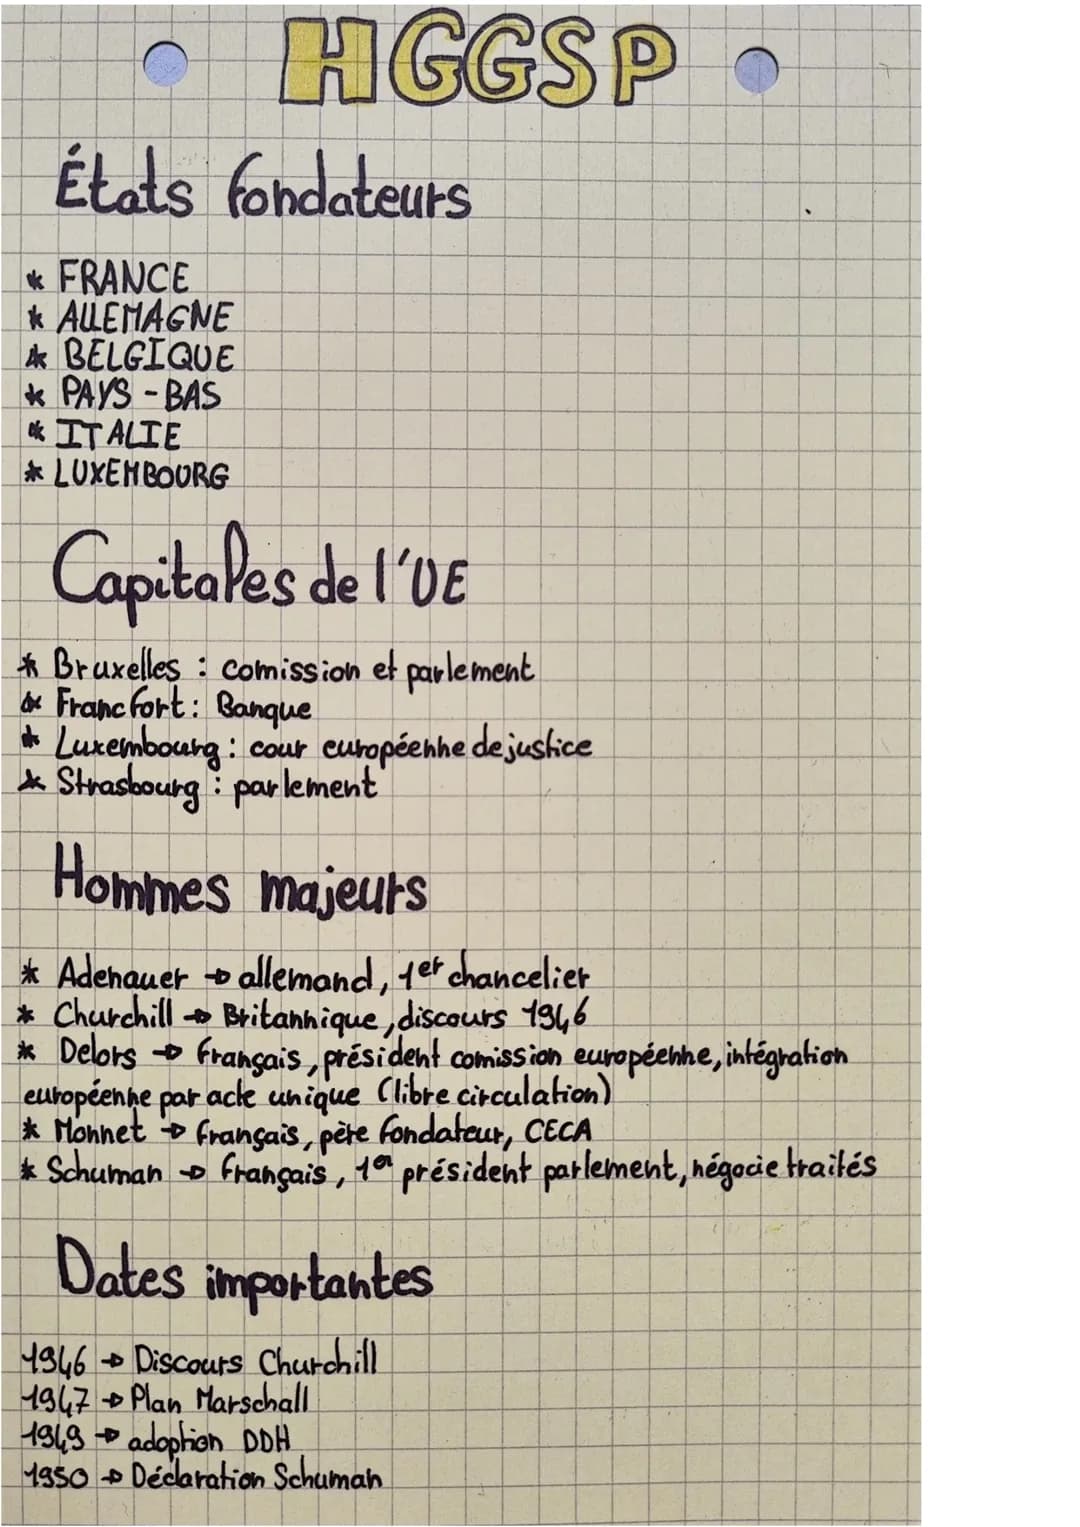 HGGSP
États fondateurs
* FRANCE
* ALLEMAGNE
* BELGIQUE
* PAYS-BAS
* ITALIE
* LUXEMBOURG
Capitales de l'UE
* Bruxelles : comission et parlement
* Francfort : Banque
* Luxembourg : cour européenne de justice
* Strasbourg : parlement
Hommes majeurs
* Adenauer → allemand, 1er chancelier
* Churchill → Britannique, discours 1946
* Delors → français, président comission européenne, intégration
européenne par acte unique (libre circulation)
* Monnet → français, père fondateur, CECA
* Schuman → français, 1er président parlement, négocie traités
Dates importantes
1946 → Discours Churchill
1947 → Plan Marschall
1949 → adoption DDH
1950 → Déclaration Schuman